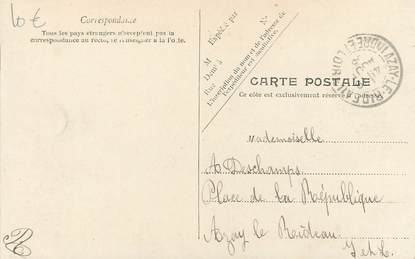 10 €
Correspondance
Tous les pays étrangers n'acceptent pas la
correspondance au recto, se renseigner à la Poste.
M
Expédié par
N°
Demt à
Rue
L'inscription du nom et de l'adresse de
l'expéditeur est facultative.
CARTE POSTALE
Ce côté est exclusivement réservé à l'adresse
AZAY-LE-RIDEAU
INDRE ET LOIRE
Mademoiselle
A Deschamps
Place de la République
Azay le Rideau
I et L.